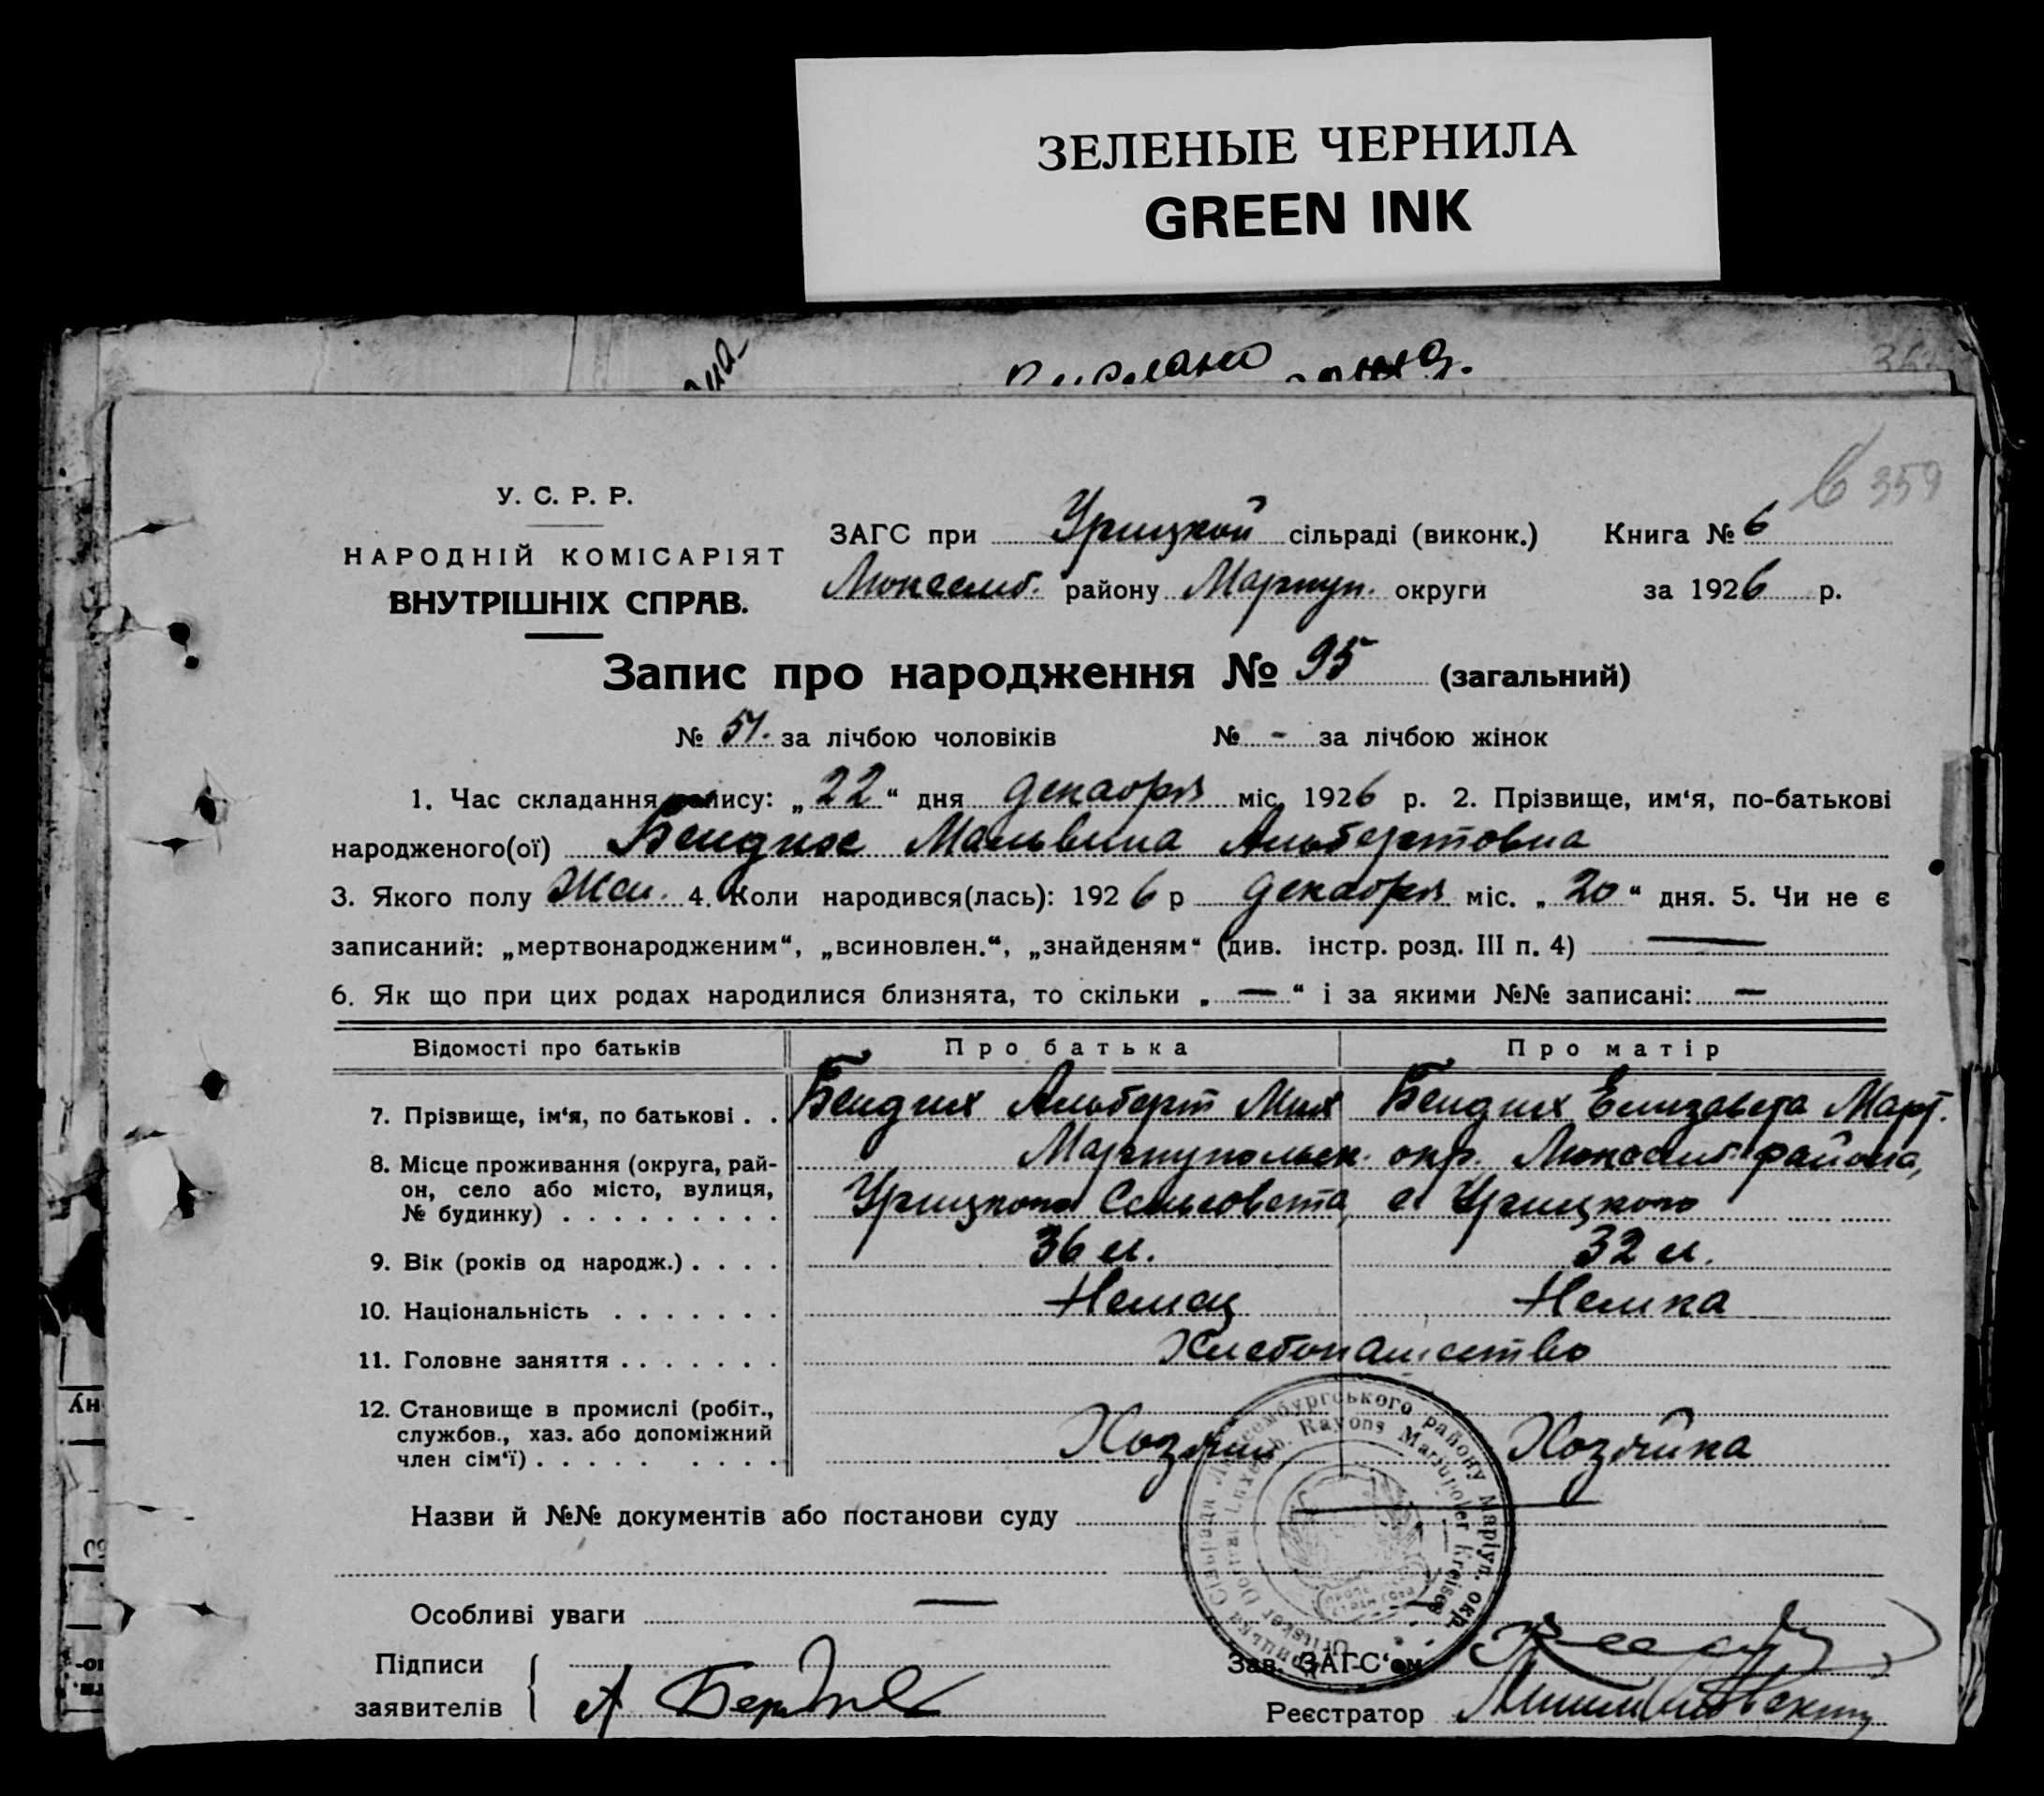 ЗЕЛЕНЫЕ ЧЕРНИЛА
GREEN INK
6 359
У. С. Р. Р.
НАРОДНІЙ КОМІСАРІЯТ
ВНУТРІШНІХ СПРАВ.
ЗАГС при Урицкой сільраді (виконк.) Книга № 6
Люксемб. району Мариуп. округи за 1926 р.
Запис про народження № 95 (загальний)
№ 51. за лічбою чоловіків № - за лічбою жінок
1. Час складання запису: „22“ дня декабря міс. 1926 р. 2. Прізвище, им‘я, по-батькові
народженого(ої) Бендих Мальвина Альбертовна
3. Якого полу Жен. 4. Коли народився(лась): 1926 р декабря міс. „20“ дня. 5. Чи не є
записаний: „мертвонародженим“, „всиновлен.“, „знайденям“ (див. інстр. розд. III п. 4) —
6. Як що при цих родах народилися близнята, то скільки „—“ і за якими №№ записані: —
Відомості про батьків Про батька Про матір
7. Прізвище, ім‘я, по батькові . . Бендих Альберт Мих Бендих Елизавета Март.
8. Місце проживання (округа, рай- Мариупольск. окр. Люксемб района,
он, село або місто, вулиця, Урицкого Сельсовета, с. Урицкого
№ будинку) . . . . . . . . .
9. Вік (років од народж.) . . . . 36 л. 32 л.
10. Національність . . . . . . . Немец Немка
11. Головне заняття . . . . . . . Хлебопашество
12. Становище в промислі (робіт.,
службов., хаз. або допоміжний Хозяин Хозяйка
член сім‘ї) . . . . . . . . .
Назви й №№ документів або постанови суду —
Особливі уваги —
Підписи Зав. ЗАГС‘ом
заявителів А Бендих Реєстратор
Сільрада Люксембургського району Маріуп. окр.
Dorfrat Luxemb. Rayons Mariupoler Kreises